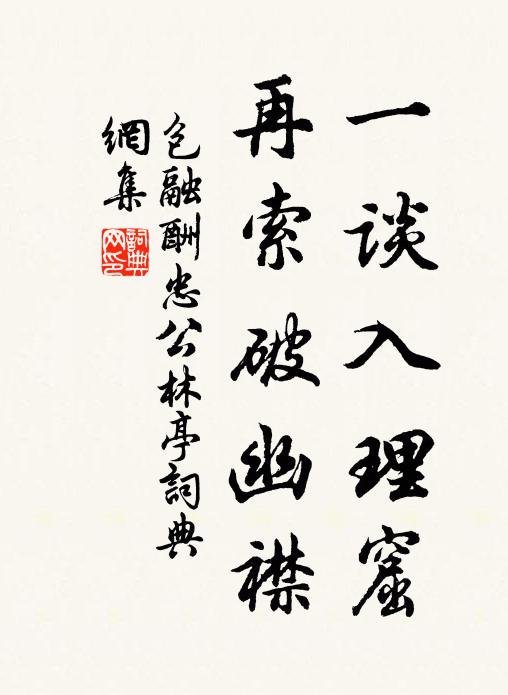 一谈入理窟
再索破幽襟
包融酬忠公林亭詞典
網集
詞典
网印